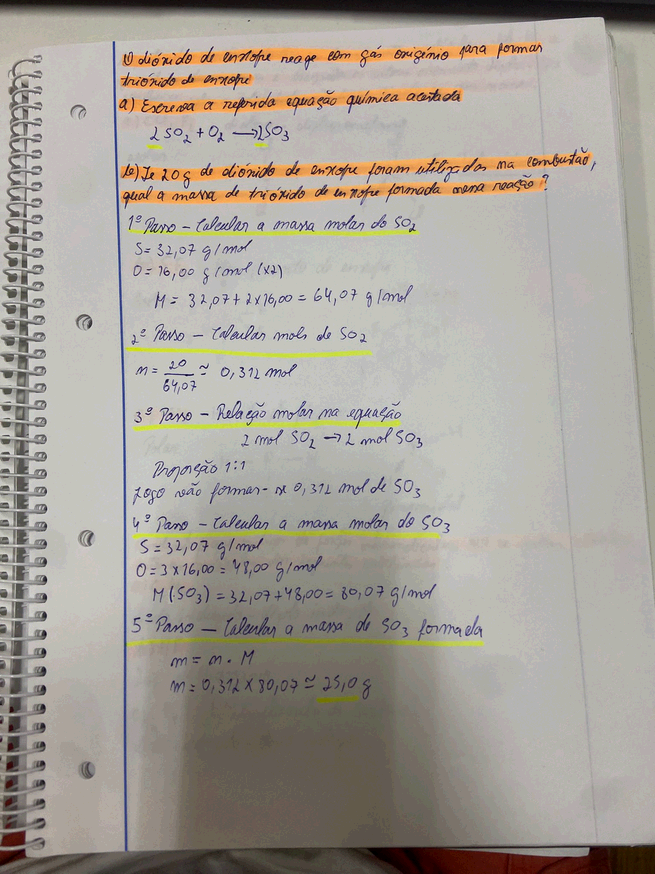 O dióxido de enxofre reage com gás oxigénio para formar
trióxido de enxofre
a) Escreva a referida equação química acertada
2 SO₂ + O₂ → 2SO₃
b) Se 20 g de dióxido de enxofre foram utilizados na combustão,
qual a massa de trióxido de enxofre formada nessa reação?
1º Passo – Calcular a massa molar do SO₂
S = 32,07 g/mol
O = 16,00 g/mol (x2)
M = 32,07 + 2 x 16,00 = 64,07 g/mol
2º Passo – Calcular mols de SO₂
n = 20/64,07 ≈ 0,312 mol
3º Passo – Relação molar na equação
2 mol SO₂ → 2 mol SO₃
Proporção 1:1
Logo vão formar-se 0,312 mol de SO₃
4º Passo – Calcular a massa molar do SO₃
S = 32,07 g/mol
O = 3 x 16,00 = 48,00 g/mol
M (SO₃) = 32,07 + 48,00 = 80,07 g/mol
5º Passo – Calcular a massa de SO₃ formada
m = n . M
m = 0,312 x 80,07 ≈ 25,0 g